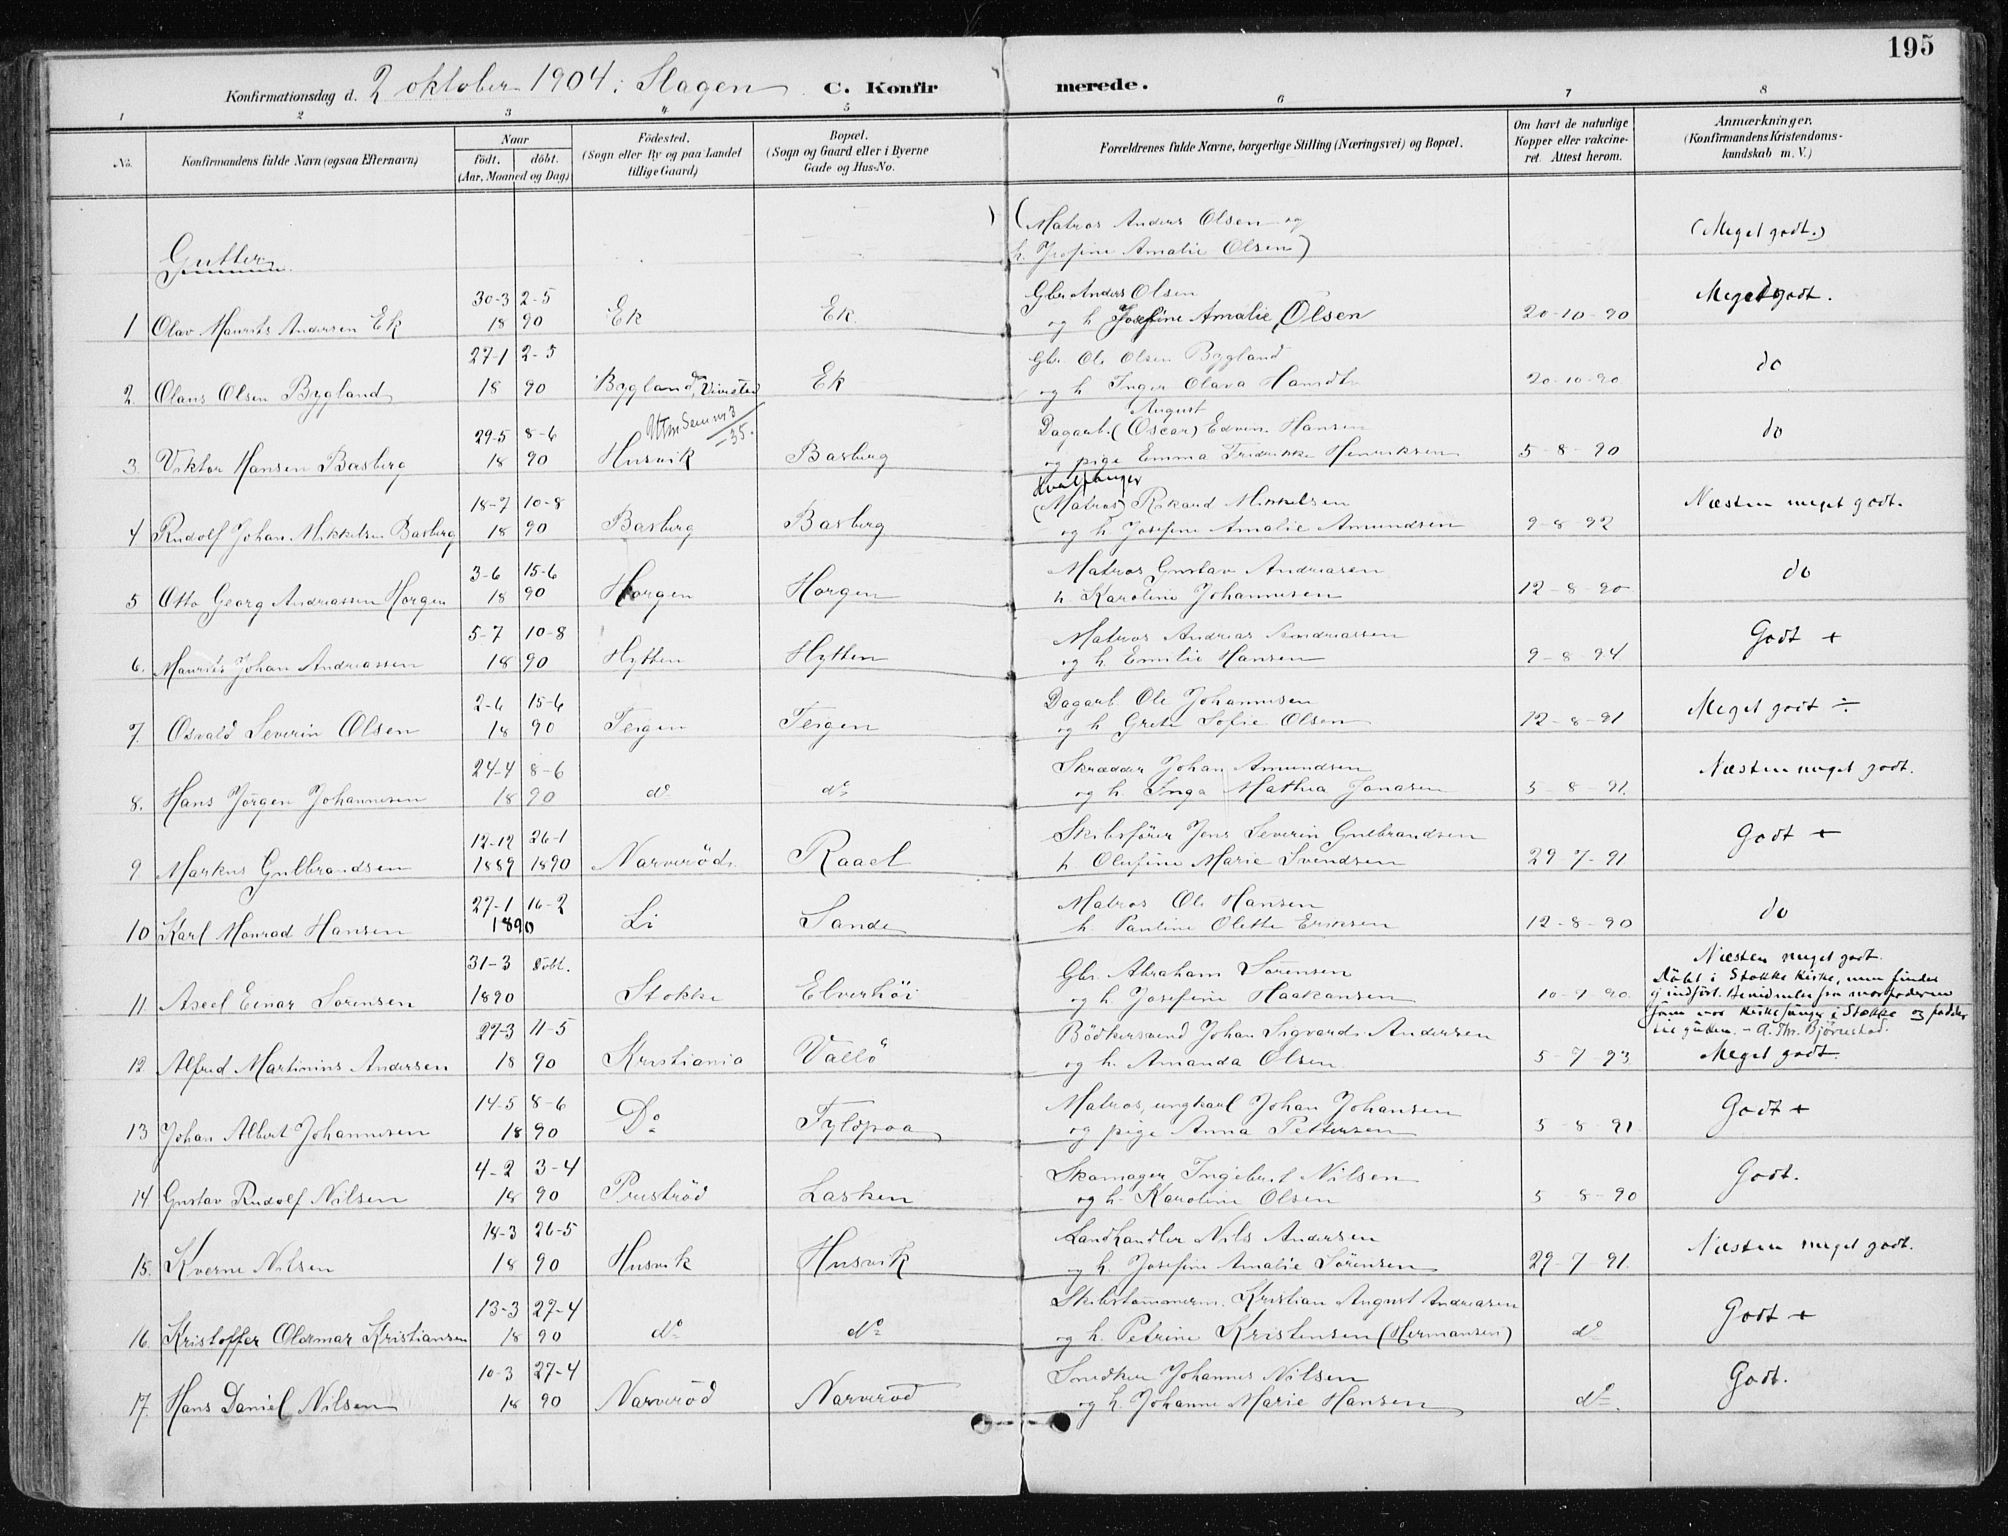 195
Konfirmationsdag d. 2 oktober 1904 i Slagen C. Konfirmerede.
1 2 3 4 5 6 7 8
No. Konfirmandens fulde Navn (ogsaa Efternavn) Naar födt. döbt. (Aar, Maaned og Dag) Födested. (Sogn eller By og paa Landet tillige Gaard) Bopæl. (Sogn og Gaard eller i Byerne Gade og Hus-No. Forældrenes fulde Navne, borgerlige Stilling (Næringsvei) og Bopæl. Om havt de naturlige Kopper eller vakcineret. Attest herom. Anmærkninger. (Konfirmandens Kristendomskundskab m. V.)
(Matros Anders Olsen og (Meget godt.)
Gutter h. Josefine Amalie Olsen)
30-3 2-5 Gbr. Anders Olsen Meget godt.
1 Olav Maurits Andersen Ek 18 90 Ek Ek og h. Josefine Amalie Olsen 20-10-90
27-1 2-5 Gbr. Ole Olsen Bygland do
2. Olaus Olsen Bygland 18 90 Bygland, Vivestad Ek og h. Inger Olava Hansdtr 20-10-90
August
29-5 8-6 Dagarb. (Oscar) Edvin Hansen do
3. Viktor Hansen Basberg 18 90 Husvik Basberg og pige Emma Fredrikke Henriksen 5-8-90
Hvalfanger
18-7 10-8 (Matros) Rikard Mikkelsen Næsten meget godt.
4 Rudolf Johan Mikkelsen Basberg 18 90 Basberg Basberg og h. Josefine Amalie Amundsen 9-8-92
3-6 15-6 Matros Gustav Andreasen do
5 Otto Georg Andreassen Horgen 18 90 Horgen Horgen h. Karoline Johannesen 12-8-90
5-7 10-8 Matros Andreas Andreassen Godt +
6. Maurits Johan Andreassen 18 90 Hytten Hytten og h. Emilie Hansen 9-8-94
2-6 15-6 Dagarb. Ole Johannesen Meget godt ÷
7. Osvald Severin Olsen 18 90 Teigen Teigen og h. Grete Sofie Olsen 12-8-91
24-4 8-6 Skrædder Johan Amundsen Næsten meget godt.
8. Hans Jørgen Johannesen 18 90 do do og h. Inga Mathea Jonasen 5-8-91.
12-12 26-1 Skibsfører Jens Severin Gulbrandsen Godt +
9 Markus Gulbrandsen 1889 1890 Narverød Raael h. Olufine Marie Svendsen 29-7-91
27-1 16-2 Matros Ole Hansen do
10 Karl Monrad Hansen 1890 Li Sande h. Pauline Olette Eriksen 12-8-90
31-3 Döbt. Gbr. Abraham Sørensen Næsten meget godt.
11. Axel Einar Sørensen 1890 Stokke Elverhöi og h. Josefine Haakansen 10-9-90 Döbt i Stokke Kirke, men findes ej indført. - A. Th. Bjørnestad.
27-3 11-5 Bödkersvend Johan Sigvard Andersen
12. Alfred Martinius Andersen 18 90 Kristiania Vallö og h. Amanda Olsen 5-7-93 Meget godt.
14-5 8-6 Matros, ungkarl Johan Johansen Godt +
13 Johan Albert Johannesen 18 90 Do Tyldpaa og pige Anna Pettersen 5-8-91
4-2 3-4 Skomager Ingebret Nilsen Godt.
14 Gustav Rudolf Nilsen 18 90 Presterød Lasken og h. Karoline Olsen 5-8-90
18-3 26-5 Landhandler Nils Andersen Næsten meget godt.
15. Kverne Nilsen 18 90 Husvik Husvik og h. Josefine Amalie Sørensen 29-7-91.
13-3 27-4 Skibstømmerm. Kristian August Andreasen Godt +
16. Kristoffer Oldemar Kristiansen 18 90 do do og h. Petrine Kristensen (Hermansen) do
10-3 27-4 Snedker Johannes Nilsen Godt.
17. Hans Daniel Nilsen 18 90 Narverød Narverød og h. Johanne Marie Hansen do.